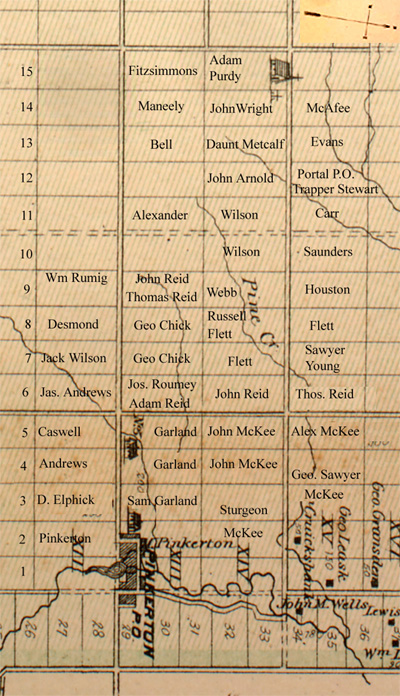 15 Fitzsimmons Adam Purdy
14 Maneely JohnWright McAfee
13 Bell Daunt Metcalf Evans
12 John Arnold Portal P.O.
Trapper Stewart
11 Alexander Wilson Carr
10 Wilson Saunders
9 Wm Rumig John Reid
Thomas Reid Webb Houston
Pine Cr
8 Desmond Geo Chick Russell
Flett Flett
7 Jack Wilson Geo Chick Flett Sawyer
Young
6 Jas. Andrews Jos. Roumey
Adam Reid John Reid Thos. Reid
5 Caswell Garland John McKee Alex McKee
4 Andrews Garland John McKee Geo. Sawyer
3 D. Elphick Sam Garland Sturgeon McKee
2 Pinkerton Pinkerton McKee
1
XII XIII XIV XV XVI
Geo Leask
130
Geo Gransden
50
PINKERTON
P.O.
John M. Wells
Lewis
Wm
26 27 28 29 30 31 32 33 34 35 36 37